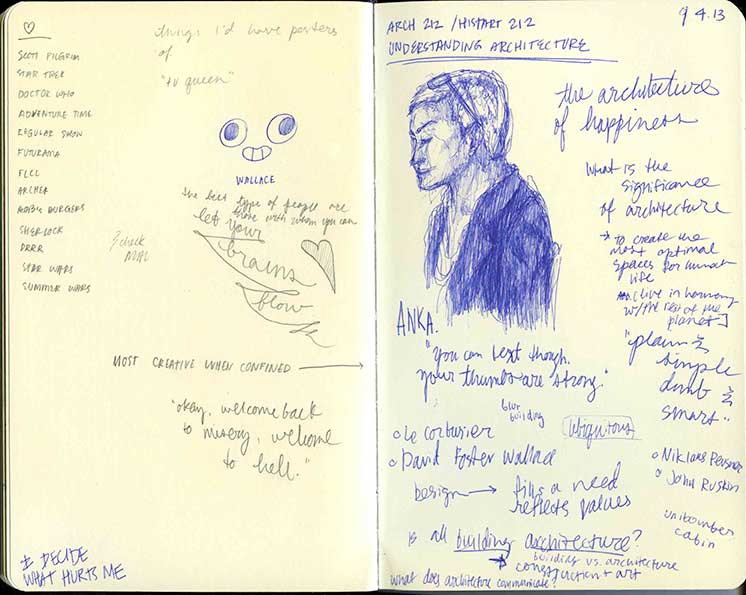 SCOTT PILGRIM
STAR TREK
DOCTOR WHO
ADVENTURE TIME
REGULAR SHOW
FUTURAMA
FLCL
ARCHER
BOB'S BURGERS
SHERLOCK
DRRR
STAR WARS
SUMMER WARS
things I'd have posters
of
"tv queen"
WALLACE
the best type of people are
those with whom you can
let your
brains
flow
? check
MAL
MOST CREATIVE WHEN CONFINED →
"okay, welcome back
to misery, welcome
to hell."
I DECIDE
WHAT HURTS ME
ARCH 212 / HISTART 212
UNDERSTANDING ARCHITECTURE
9 4.13
the architecture
of happiness
What is the
significance
of architecture
→ to create the
most optimal
spaces for human
life
[live in harmony
w/ the rest of the
planet]
"plain &
simple
dumb &
smart"
ANKA.
"You can text though.
your thumbs are strong."
blur
building
ubiquitous
o Le Corbusier
o David Foster Wallace
o Niklaus Pevsner
o John Ruskin
Design → fills a need
reflects values
unibomber
cabin
is all building architecture?
building vs. architecture
construction + art
what does architecture communicate?